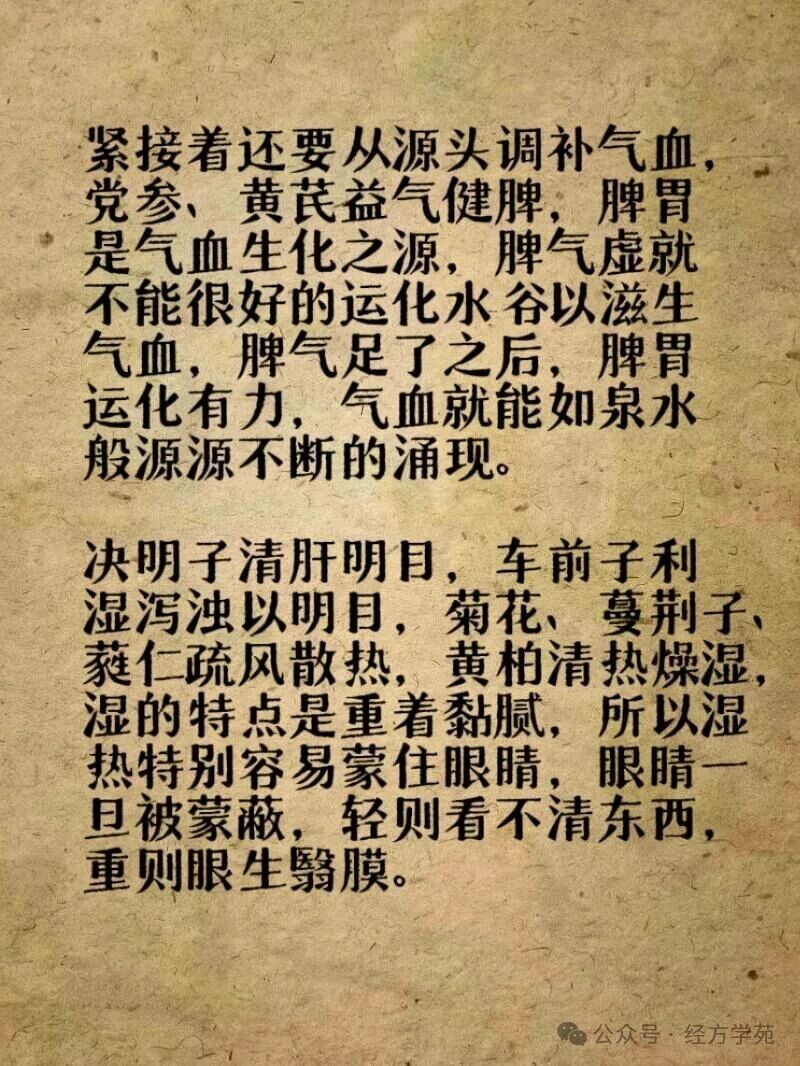 紧接着还要从源头调补气血，
党参、黄芪益气健脾，脾胃
是气血生化之源，脾气虚就
不能很好的运化水谷以滋生
气血，脾气足了之后，脾胃
运化有力，气血就能如泉水
般源源不断的涌现。
决明子清肝明目，车前子利
湿泻浊以明目，菊花、蔓荆子、
蕤仁疏风散热，黄柏清热燥湿，
湿的特点是重着黏腻，所以湿
热特别容易蒙住眼睛，眼睛一
旦被蒙蔽，轻则看不清东西，
重则眼生翳膜。
公众号·经方学苑